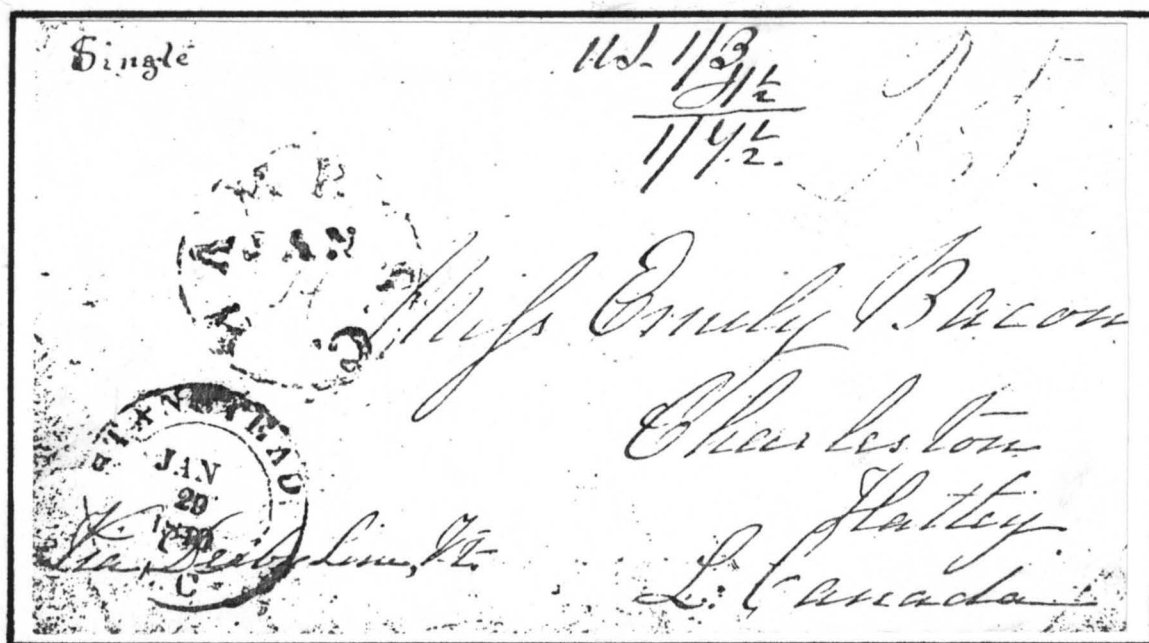 Single
US. 1/3
1/4½.
25
JAN
Miss Emily Bacon
Charleston
Hatley
L. Canada
STANSTEAD
JAN
29
C
Via Derby Line, Vt.